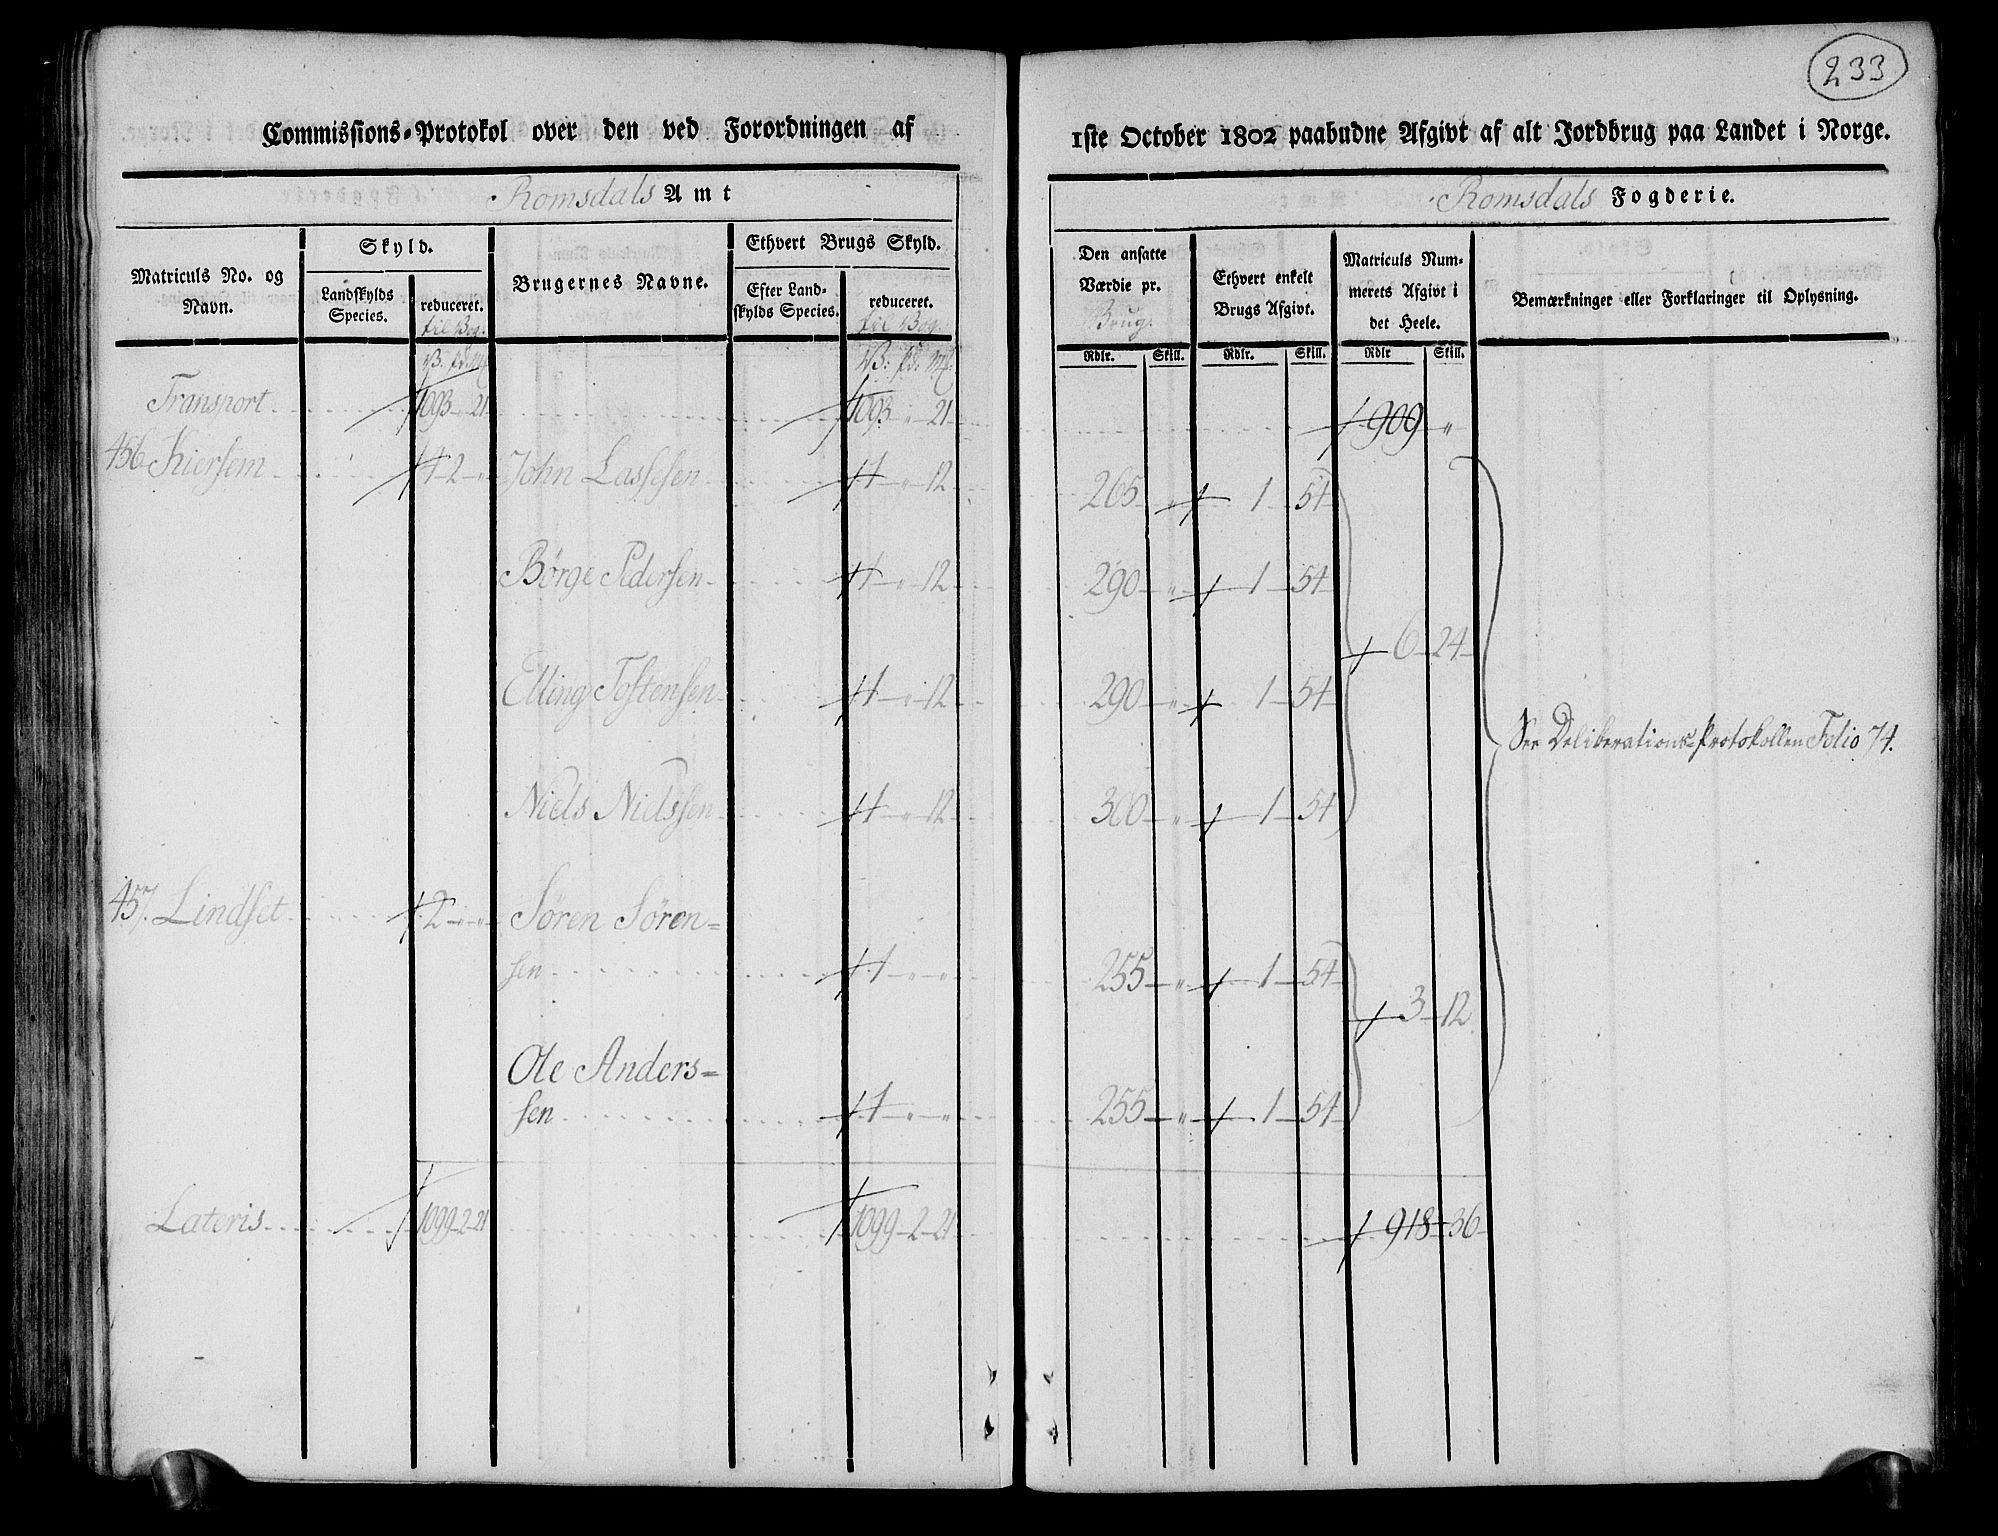 233
Commissions-Protokol over den ved Forordningen af
1ste October 1802 paabudne Afgivt af alt Jordbrug paa Landet i Norge.
Romsdals Amt
Romsdals Fogderie.
Matriculs No. og Navn.
Skyld.
Landskylds Species.
reduceret.
til Vog.
Brugernes Navne.
Ethvert Brugs Skyld.
Efter Landskylds Species.
reduceret.
til Vog.
Den ansatte Værdie pr.
Brug.
Ethvert enkelt Brugs Afgivt.
Matriculs Nummerets Afgivt i det Heele.
Bemærkninger eller Forklaringer til Oplysning.
V: pd: mk V: pd: mk: Rdlr. Skill. Rdlr. Skill. Rdlr Skill.
Transport 1093 " 21 1093 " 21 909 "
456 Kiersem 4 2 " John Lassesen 1 " 12 265 " 1 54
Børge Pedersen 1 " 12 290 " 1 54
6 24
Elling Tostensen 1 " 12 290 " 1 54
See Deliberations-Protokollen Folio 74.
Niels Nielssen 1 " 12 300 " 1 54
457. Lindset 2 " " Søren Søren=
sen 1 " " 255 " 1 54
3 12
Ole Anders=
sen 1 " " 255 " 1 54
Lateris 1099 2 21 1099 2 21 918 36